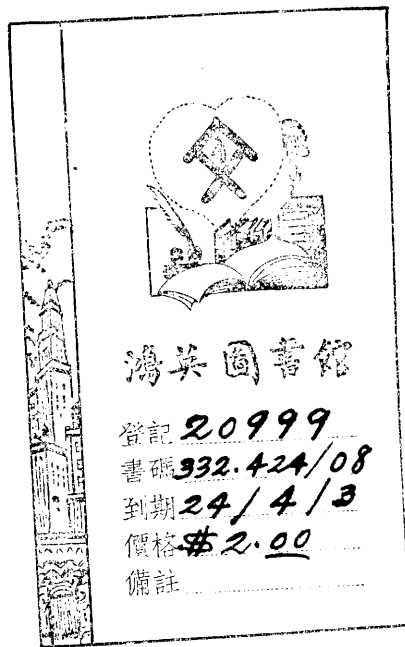 愛
鴻英圖書館
登記 20999
書碼 332.424/08
到期 24/4/3
價格 $2.00
備註